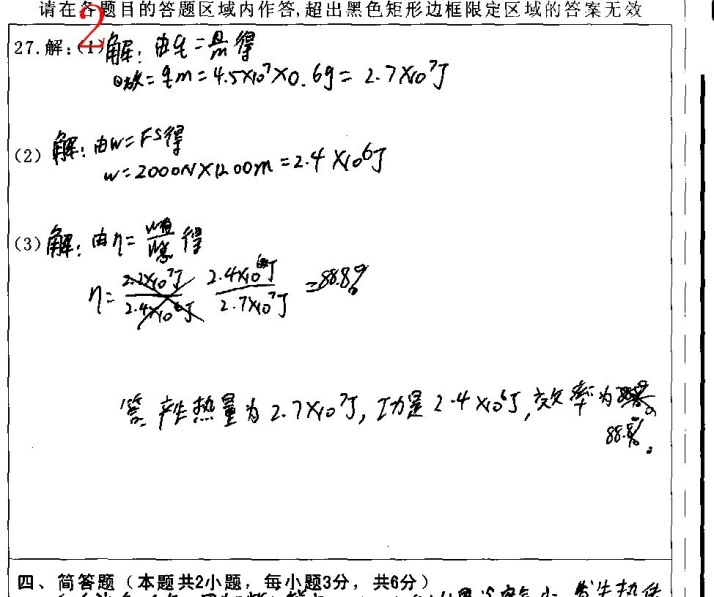 请在各题目的答题区域内作答,超出黑色矩形边框限定区域的答案无效
2
27.解:(1)解:由q=Q/m得
Q放=qm=4.5×10⁷×0.6g=2.7×10⁷J
(2)解:由W=FS得
W=2000N×1200m=2.4×10⁶J
(3)解:由η=W有/W总得
η=2.4×10⁶J/2.7×10⁷J=88.8%
答:产生热量为2.7×10⁷J,功是2.4×10⁶J,效率为
88.8%。
四、简答题(本题共2小题,每小题3分,共6分)